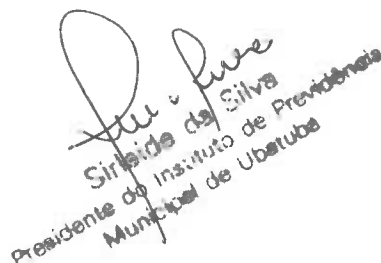 Sirleide da Silva
Presidente do Instituto de Previdência
Municipal de Ubatuba